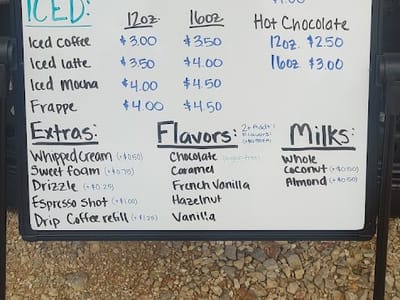 ICED:
12oz 16oz
Iced Coffee $3.00 $3.50
Iced latte $3.50 $4.00
Iced Mocha $4.00 $4.50
Frappe $4.00 $4.50
Hot Chocolate
12oz. $2.50
16oz $3.00
Extras:
Whipped cream (+$0.50)
Sweet foam (+$0.75)
Drizzle (+$0.25)
Espresso Shot (+$1.00)
Drip Coffee refill (+$1.25)
Flavors:
Chocolate (sugar-free)
Caramel
French Vanilla
Hazelnut
Vanilla
Milks:
Whole
Coconut (+$0.50)
Almond (+$0.50)